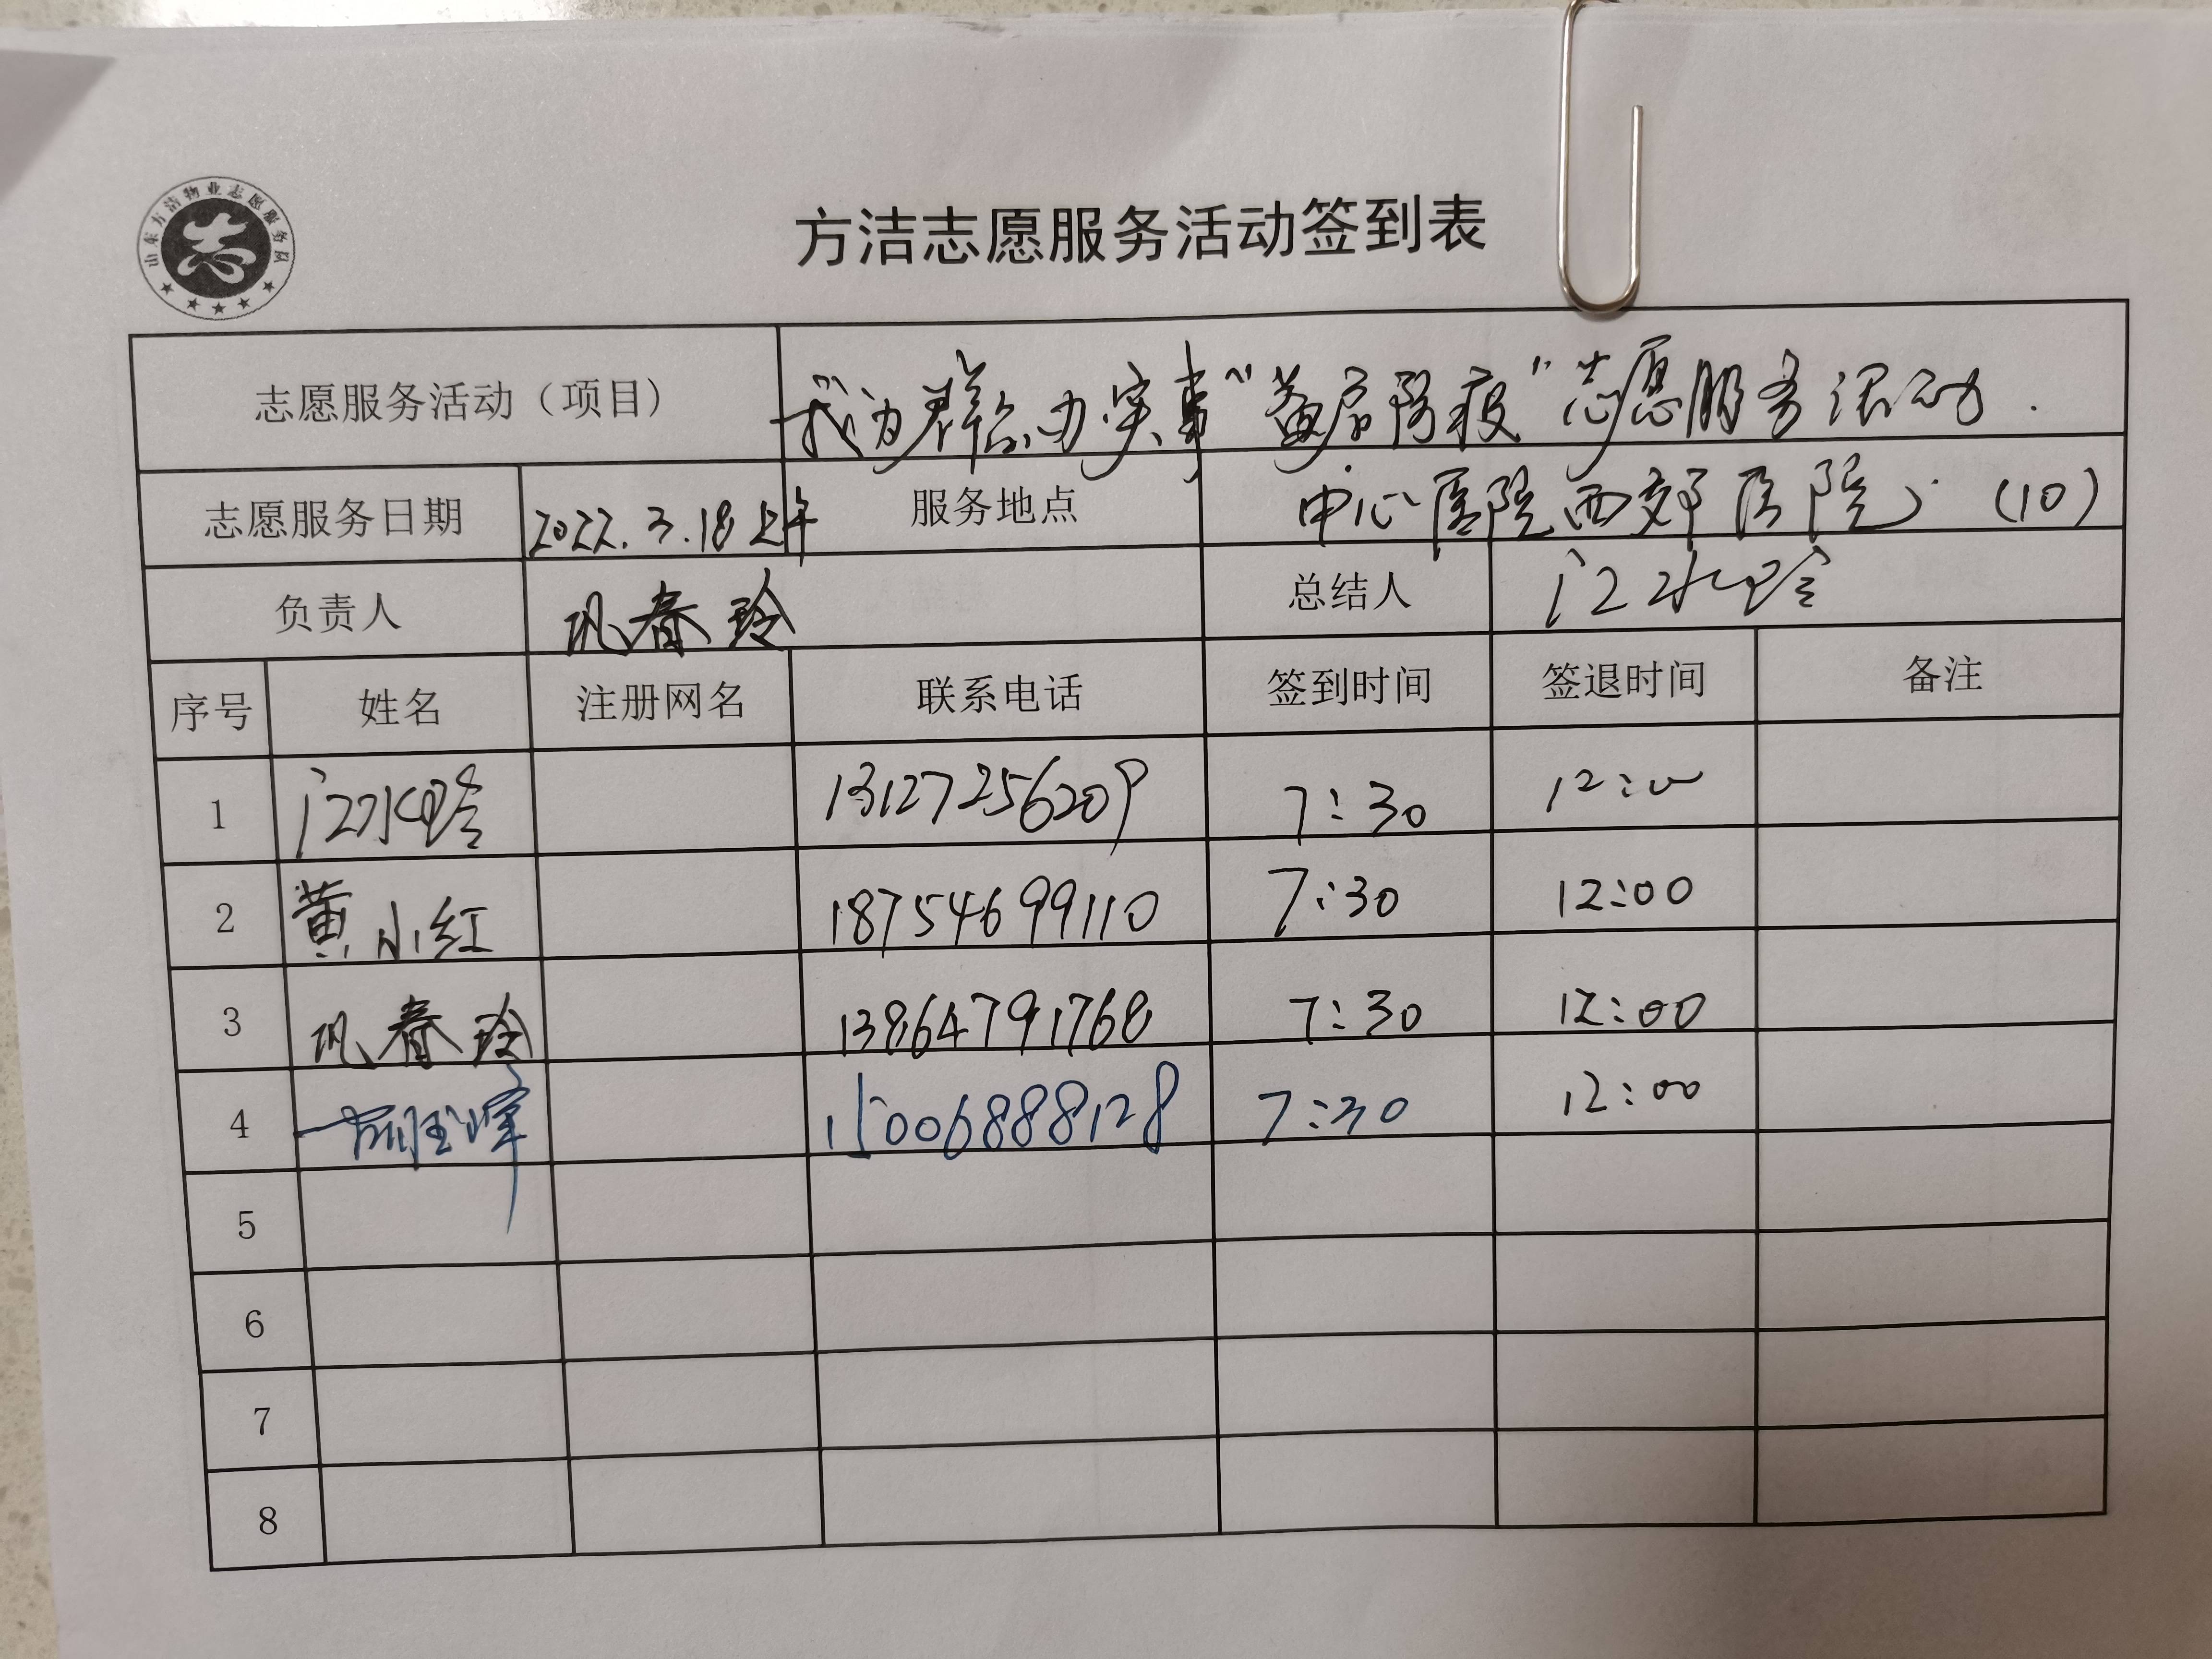 山东方洁物业志愿服务队
志
方洁志愿服务活动签到表
志愿服务活动（项目） 我为群众办实事"黄启防疫"志愿服务活动.
志愿服务日期 2022.3.18上午 服务地点 中心医院西郊医院 (10)
负责人 巩春玲 总结人 门水玲
序号 姓名 注册网名 联系电话 签到时间 签退时间 备注
1 门水玲 13127256209 7:30 12:00
2 黄小红 18754699110 7:30 12:00
3 巩春玲 13864791768 7:30 12:00
4 15006888128 7:30 12:00
5
6
7
8